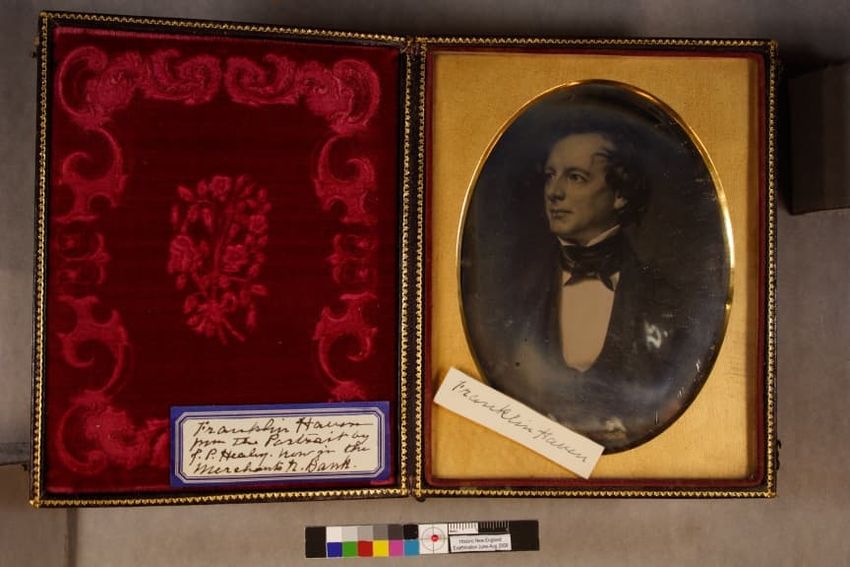 Franklin Haven
from the Portrait by
G. P. Healy. now in the
Merchants N. Bank.
Franklin Haven
Historic New England
Examination June-Aug 2008